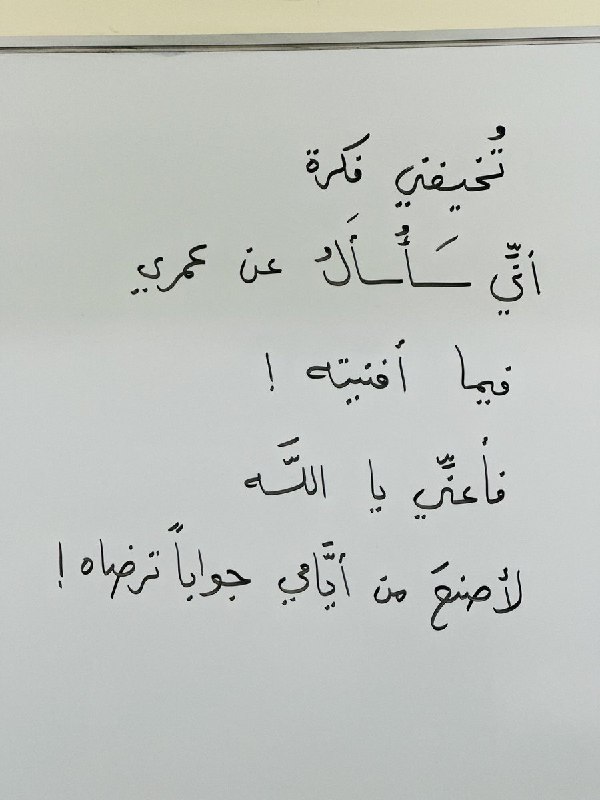 تُخيفني فكرة
أنِّي سَأُسأَلُ عن عمري
فيما أفنيته !
فأعنِّي يا اللَّـه
لأصنعَ من أيَّامي جواباً ترضاه !